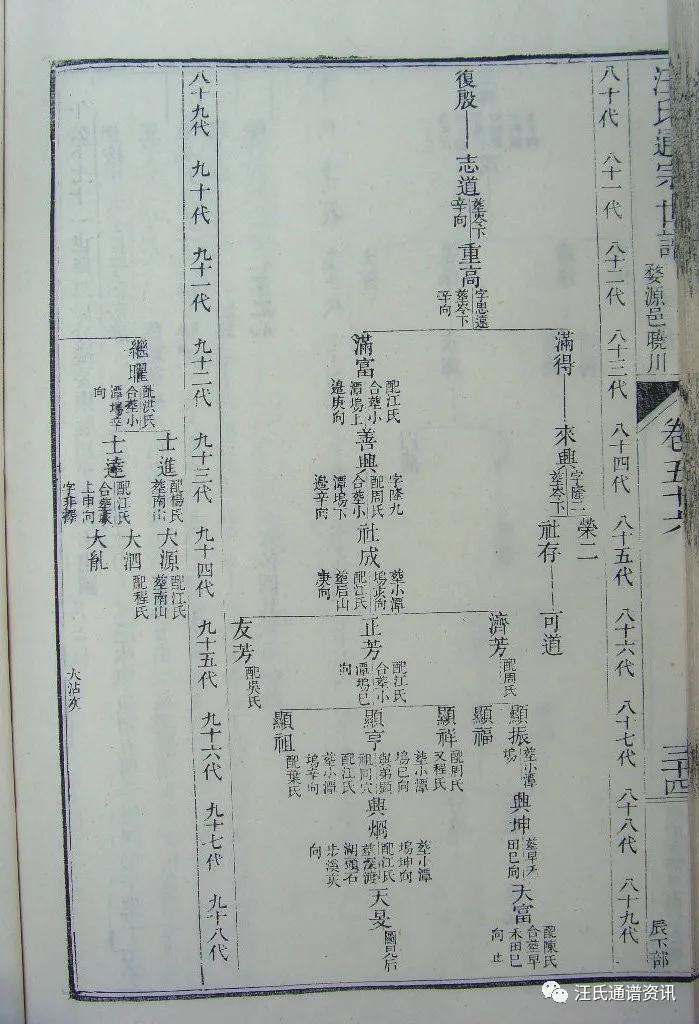 汪氏通宗世譜
婺源邑曉川
卷五十六
三十四
辰下部
八十代 八十一代 八十二代 八十三代 八十四代 八十五代 八十六代 八十七代 八十八代 八十九代
復殷
志道
葬岺下
辛向
重高
字思遠
葬岺下
辛向
滿得
來興
字隆二
葬岺下
榮二
社存
可道
滿富
配江氏
合葬小
潭塢上
邉庚向
善興
字隆九
配周氏
合葬小
潭塢下
邉辛向
社成
葬小潭
塢庚向
配江氏
葬后山
庚向
濟芳
配周氏
顯振
葬小潭
塢
興坤
葬早禾
田巳向
天富
配陳氏
合葬早
禾田巳
向 止
顯福
正芳
配江氏
合葬小
潭塢巳
向
顯祥
配周氏
又程氏
顯亨
葬小潭
塢巳向
與弟顯
祖同穴
配江氏
葬小潭
塢辛向
興烱
葬小潭
塢坤向
配江氏
葬深渡
湖頭石
步溪亥
向
天旻
圖見后
顯祖
配葉氏
友芳
配吳氏
八十九代 九十代 九十一代 九十二代 九十三代 九十四代 九十五代 九十六代 九十七代 九十八代
繼曜
配洪氏
合葬小
潭塢辛
向
士進
配楊氏
葬南山
大源
配江氏
葬南山
大泗
配程氏
士達
配江氏
上申向
大
大沾次
汪氏通谱资讯